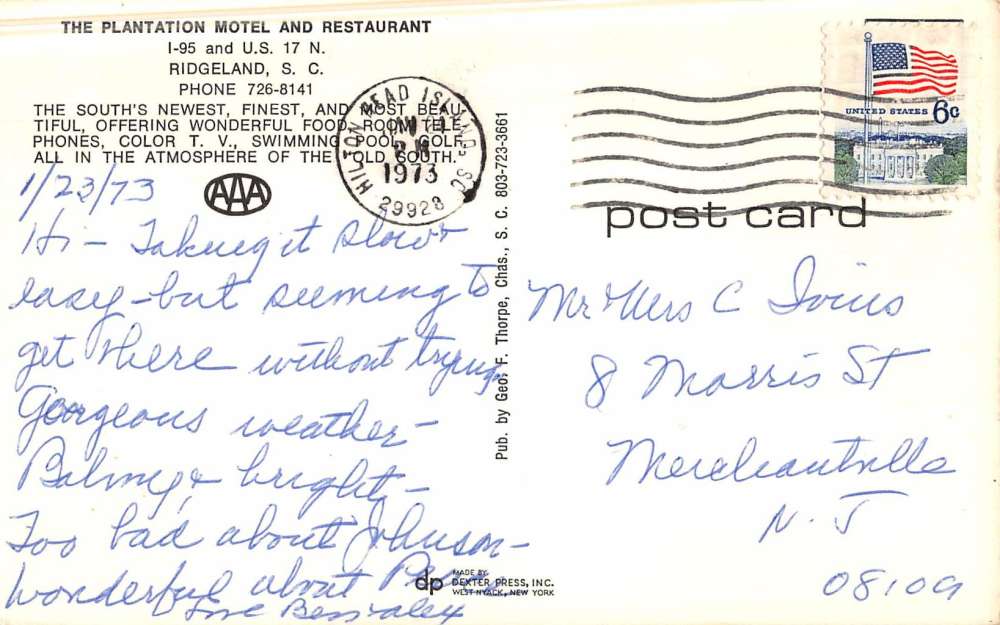 THE PLANTATION MOTEL AND RESTAURANT
I-95 and U.S. 17 N.
RIDGELAND, S. C.
PHONE 726-8141
THE SOUTH'S NEWEST, FINEST, AND MOST BEAU-
TIFUL, OFFERING WONDERFUL FOOD, ROOM TELE-
PHONES, COLOR T. V., SWIMMING POOL, GOLF,
ALL IN THE ATMOSPHERE OF THE "OLD SOUTH."
AAA
1/23/73
Hi - Taking it slow +
easy - but seeming to
get there without trying.
Gorgeous weather -
Balmy + bright -
Too bad about Johnson -
Wonderful about
Love Bess + Alex
HILTON HEAD ISLAND SC
PM
1973
29928
Pub. by Geo. F. Thorpe, Chas., S. C. 803-723-3661
MADE BY
dp DEXTER PRESS, INC.
WEST NYACK, NEW YORK
UNITED STATES 6c
post card
Mr + Mrs C Ivins
8 Morris St
Merchantville
N. J
08109